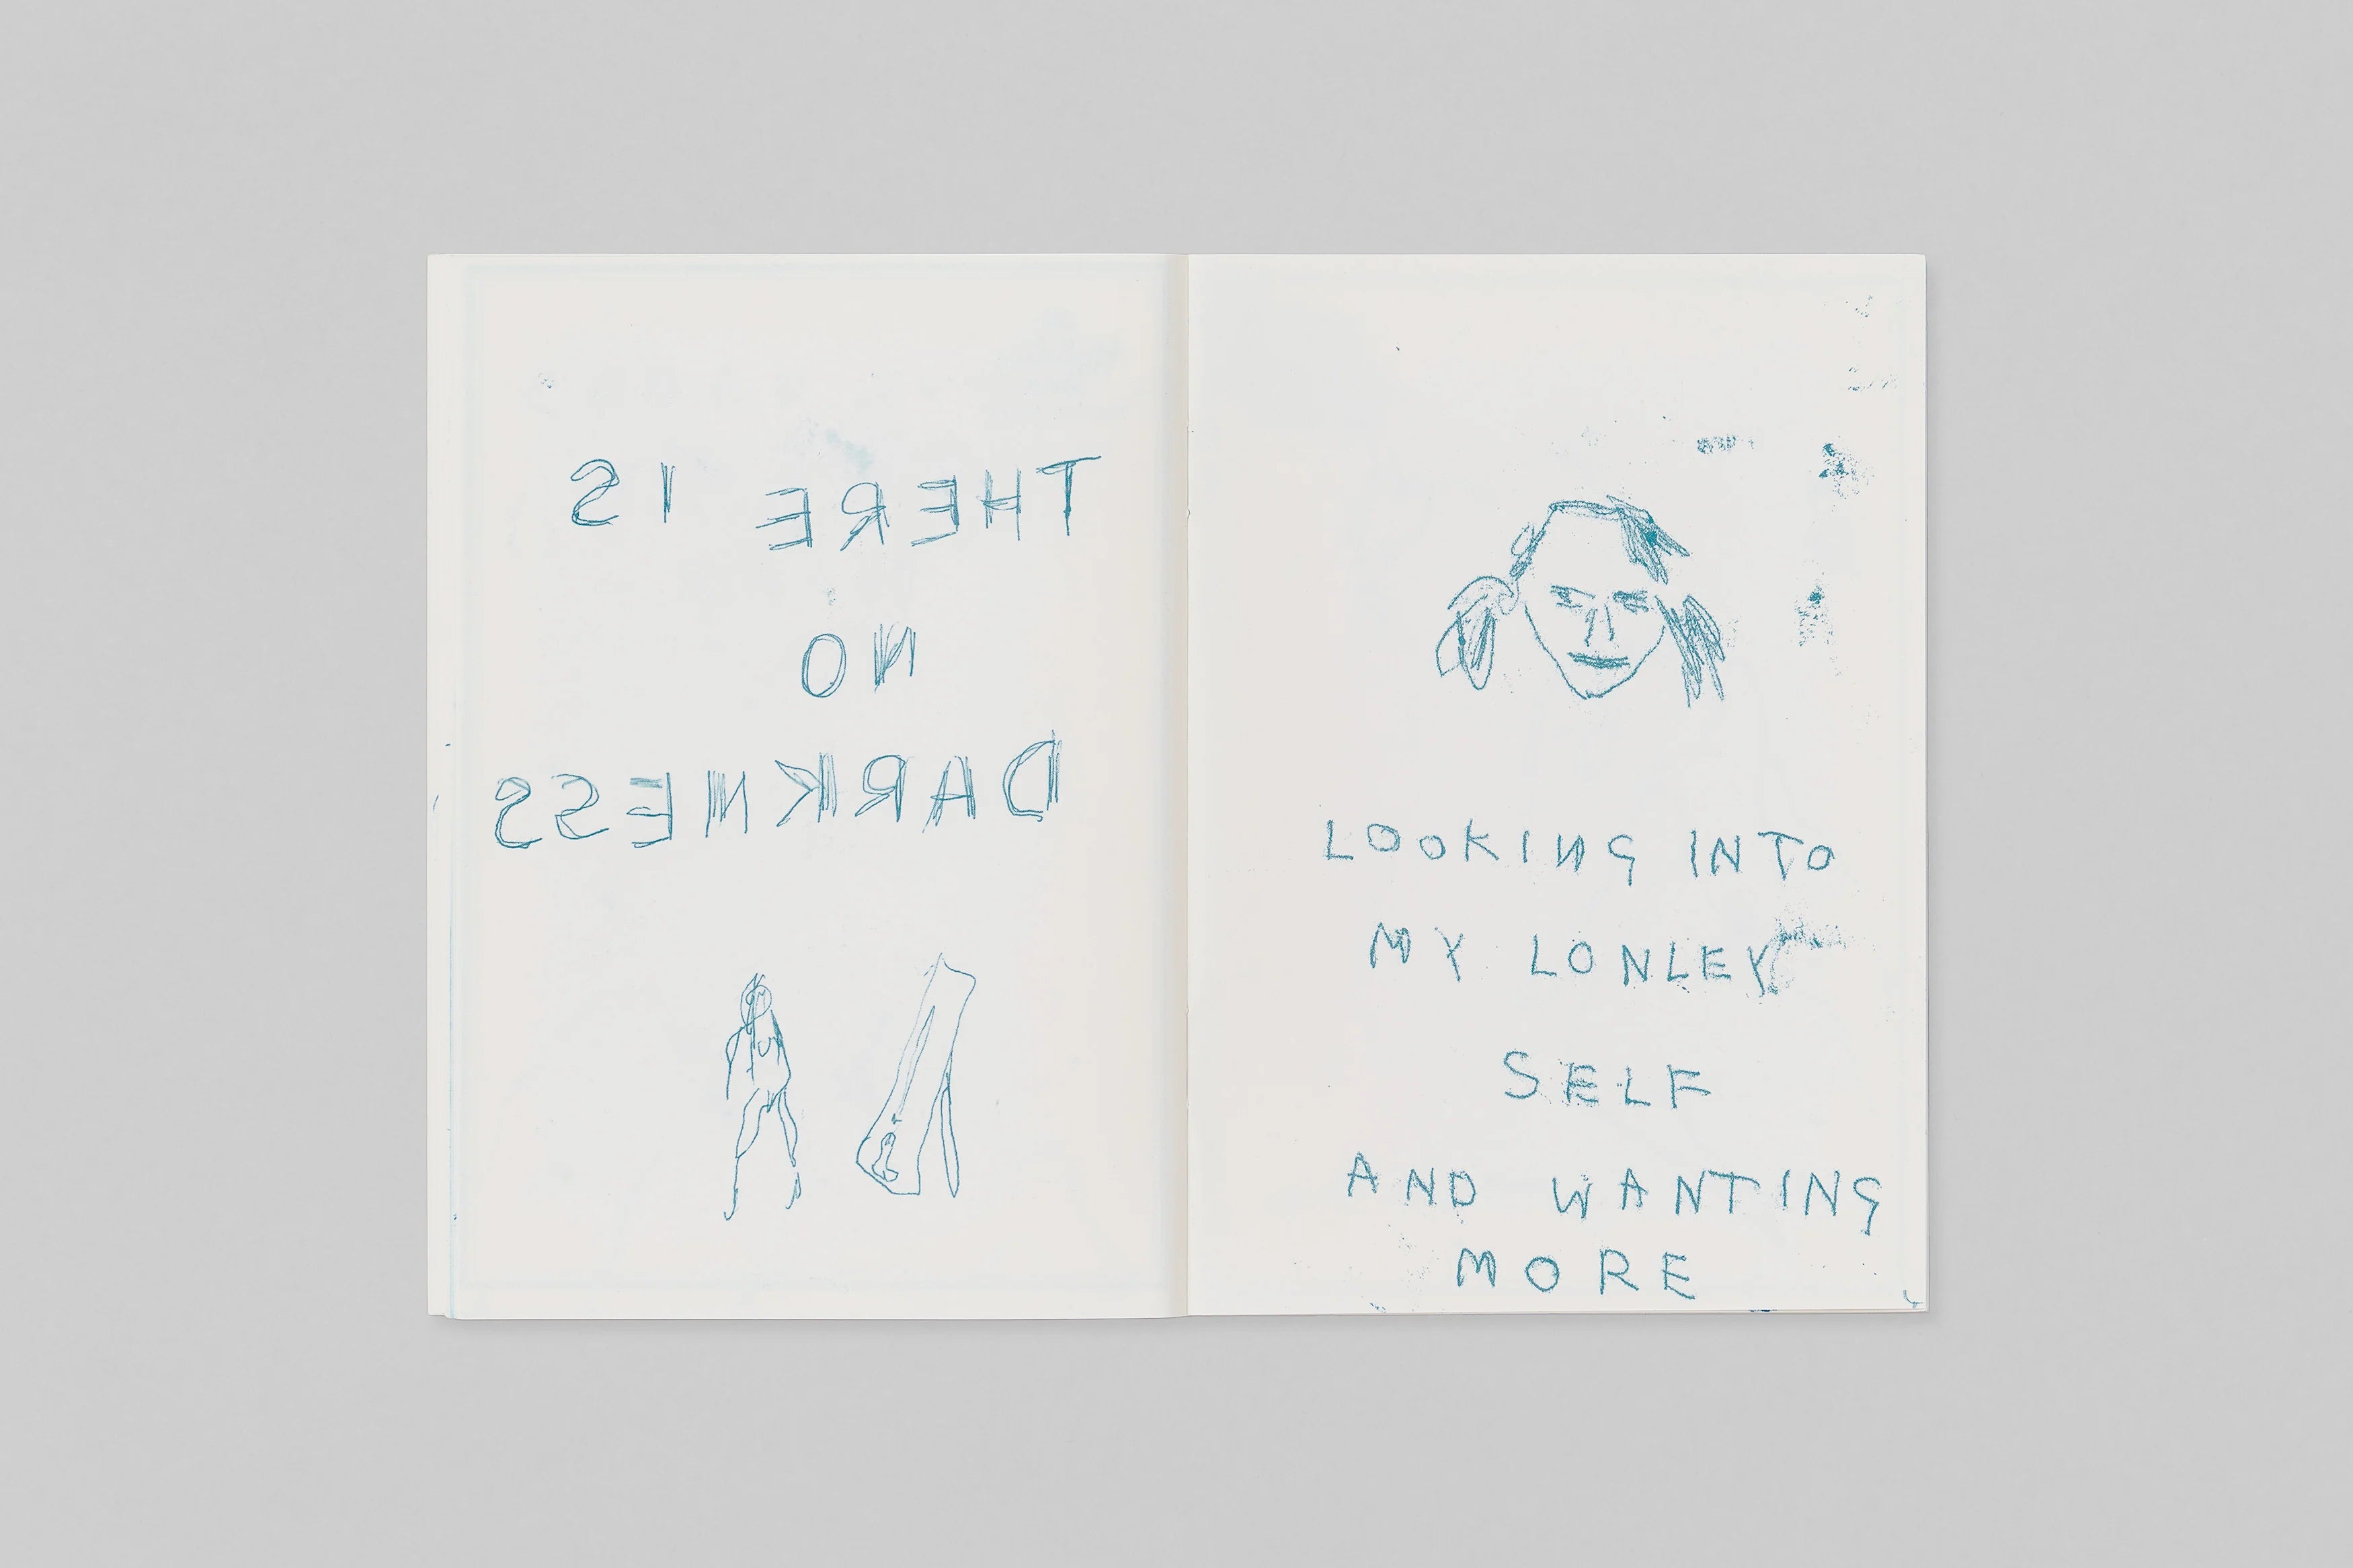 THERE IS
NO
DARKNESS
LOOKING INTO
MY LONLEY
SELF
AND WANTING
MORE